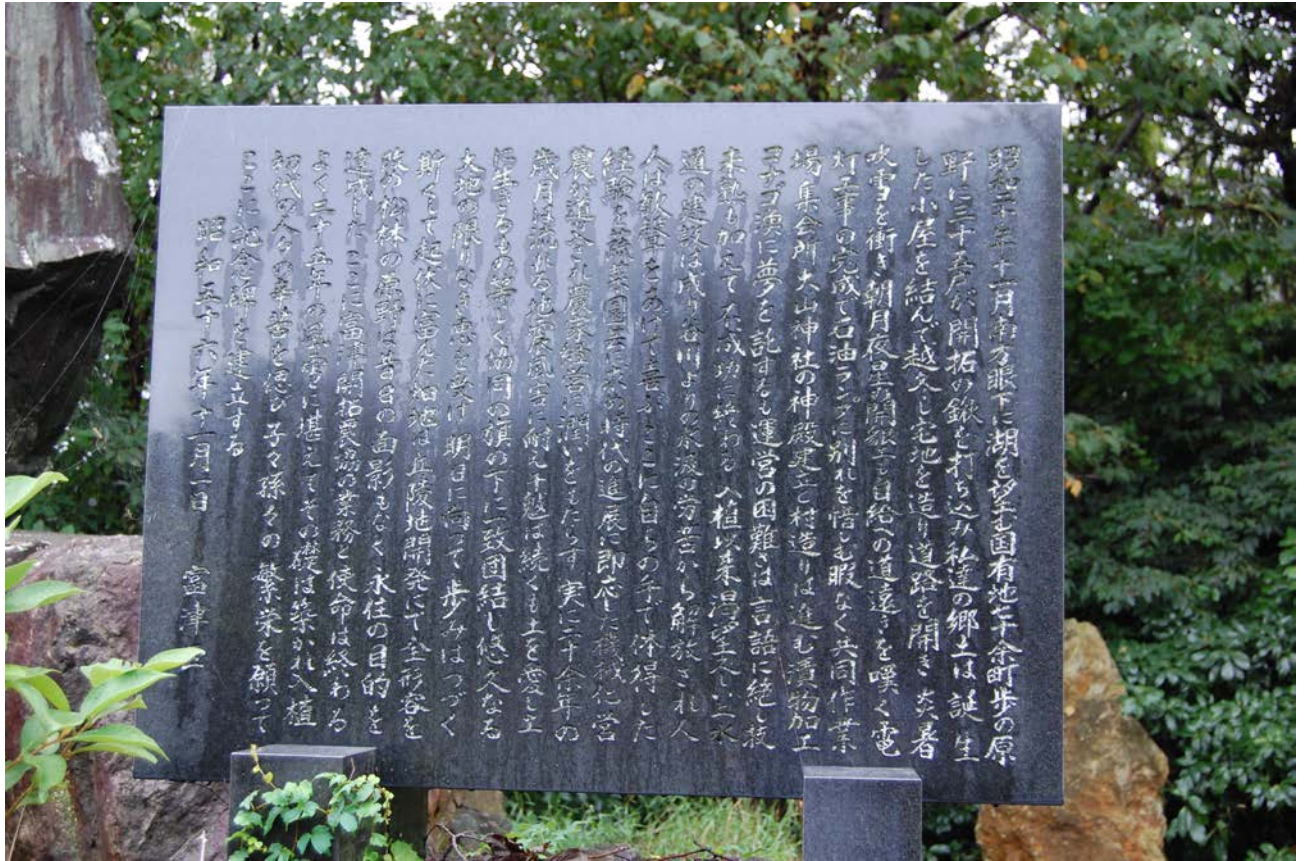 昭和二十二年十一月南方眼下に湖を望む国有地七十余町歩の原
野に三十五戸が開拓の鍬を打ち込み私達の郷土は誕生
した小屋を結んで越冬し宅地を造り道路を開き炎暑
吹雪を衝き朝月夜星の開墾も自給への道遠きを嘆く電
灯工事の完成で石油ランプに別れを惜しむ暇なく共同作業
場集会所大山神社の神殿建立と村造りは進む漬物加工
に夢を託するも運営の困難は言語に絶し技
未熟も加えて不成功に終わる入植以来渇望久しい水
道の建設は成り谷川よりの水渡の労苦から解放され人
人は歓声をあげて喜ぶここに自らの手で体得した
経験を蔬菜園芸に求め時代の進展に即応した機械化営
農が導入され農家経営に潤いをもたらす実に二十余年の
歳月は流れる地震風害に耐え干魃は続くも土を愛し土
に生きるもの等しく協同の旗の下に一致団結し悠久なる
大地の限りなき恵を受け明日に向って歩みはつづく
斯くて起伏に富んだ畑地は丘陵地開発にて全形容を
松林の原野は昔日の面影もなく永住の目的を
達成したここに富津開拓農協の業務と使命は終わる
よく三十五年の風雪に堪えてその礎は築かれ入植
初代の人々の辛苦を思び子々孫々の繁栄を願って
ここに記念碑を建立する
昭和五十六年十二月一日 富津